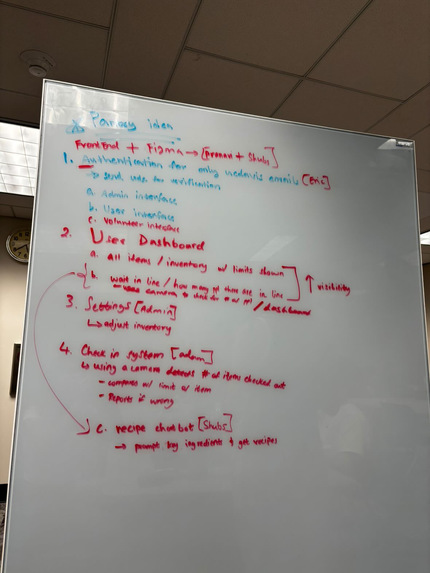 Pantry idea
Frontend + Figma → [Pranav + Shubs]
1. Authentication for only emails [Eric]
→ send code for verification
a. Admin interface
b. User interface
c. Volunteer interface
2. User Dashboard
a. all items / inventory w/ limits shown
b. wait in line / how many ppl there are in line
camera to check for # of ppl / dashboard
↑ visibility
3. Settings [Admin]
↳ adjust inventory
4. Check in system [adam]
↳ using a camera detects # of items checked out
- compares w/ limit of item
- Reports if wrong
c. recipe chatbot [Shubs]
→ prompt key ingredients & get recipes